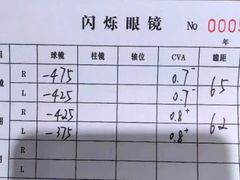 闪烁眼镜 No 0005
年
球镜 柱镜 轴位 CVA 瞳距
R -475 0.7⁻ 65
L -425 0.7⁻
R -425 0.8⁺ 62
L -375 0.8⁺
R
L